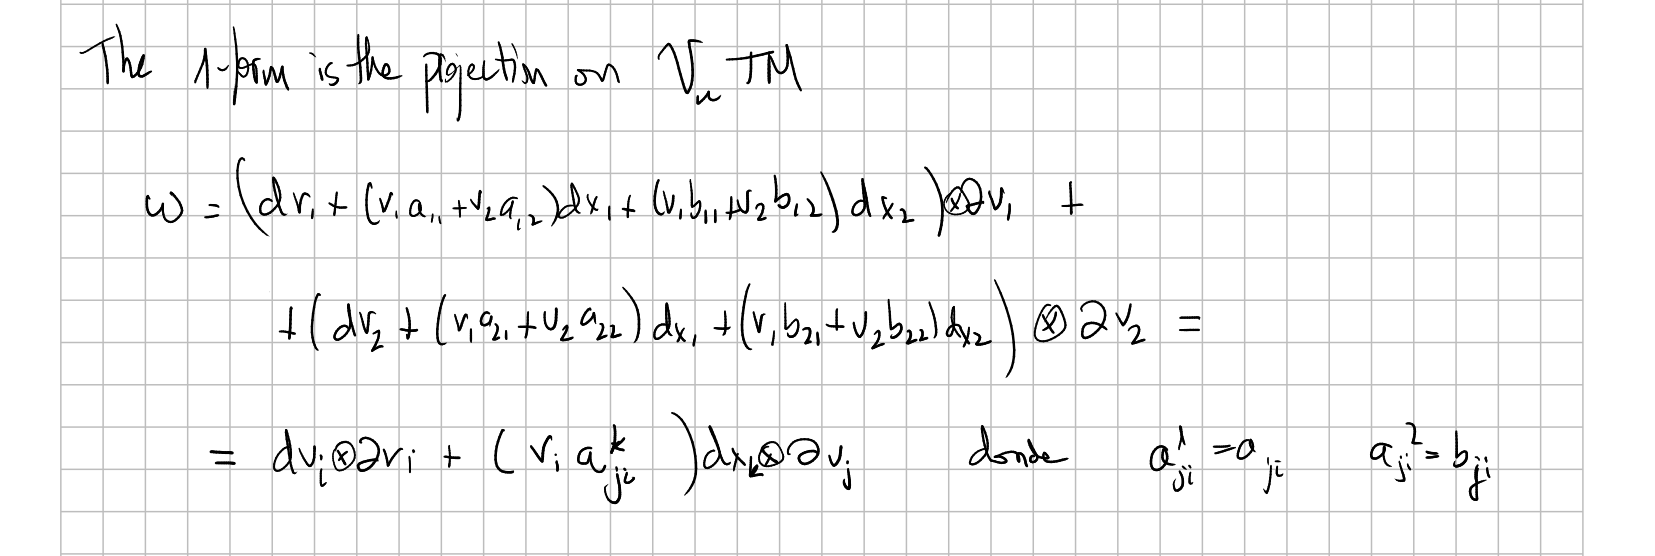 The 1-form is the projection on V_u TM
ω = (dv₁ + (v₁a₁₁ + v₂a₁₂)dx₁ + (v₁b₁₁ + v₂b₁₂)dx₂)⊗∂v₁ +
+ (dv₂ + (v₁a₂₁ + v₂a₂₂)dx₁ + (v₁b₂₁ + v₂b₂₂)dx₂) ⊗ ∂v₂ =
= dv_i⊗∂v_i + (v_i a_{ji}^k)dx_k⊗∂v_j donde a_{ji}^1 = a_{ji} a_{ji}^2 = b_{ji}